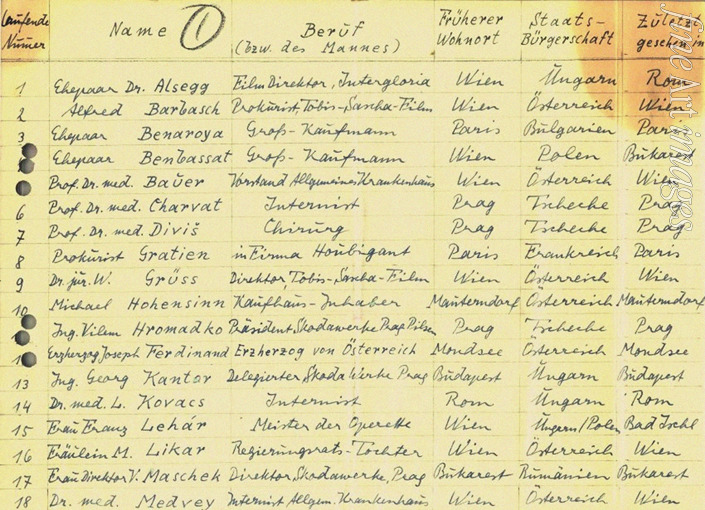 Laufende Numer | Name ① | Beruf (bzw. des Mannes) | Früherer Wohnort | Staats-Bürgerschaft | Zuletzt gesehen in
1 Ehepaar Dr. Alsegg Film Direktor, Intergloria Wien Ungarn Rom
2 Alfred Barbasch Prokurist, Tobis-Sascha-Film Wien Österreich Wien
3 Ehepaar Benaroya Groß-Kaufmann Paris Bulgarien Paris
Ehepaar Benbassat Groß-Kaufmann Wien Polen Bukarest
Prof. Dr. med. Bauer Vorstand Allgemeines Krankenhaus Wien Österreich Wien
6 Prof. Dr. med. Charvat Internist Prag Tscheche Prag
7 Prof. Dr. med. Diviš Chirurg Prag Tscheche Prag
8 Prokurist Gratien in Firma Houbigant Paris Frankreich Paris
9 Dr. jur. W. Grüss Direktor, Tobis-Sascha-Film Wien Österreich Wien
10 Michael Hohensinn Kaufhaus-Inhaber Mauterndorf Österreich Mauterndorf
Ing. Vilem Hromadko Präsident, Skodawerke, Prag Pilsen Prag Tscheche Prag
1 Erzherzog Joseph Ferdinand Erzherzog von Österreich Mondsee Österreich Mondsee
13 Ing. Georg Kantor Delegierter, Skoda Werke, Prag Budapest Ungarn Budapest
14 Dr. med. L. Kovacs Internist Rom Ungarn Rom
15 Frau Franz Lehár Meister der Operette Wien Ungarn/Polen Bad Ischl
16 Fräulein M. Likar Regierungsrats-Tochter Wien Österreich Wien
17 Frau Direktor V. Maschek Direktor, Skodawerke, Prag Bukarest Rumänien Bukarest
18 Dr. med. Medvey Internist Allgem. Krankenhaus Wien Österreich Wien
Fine Art Images